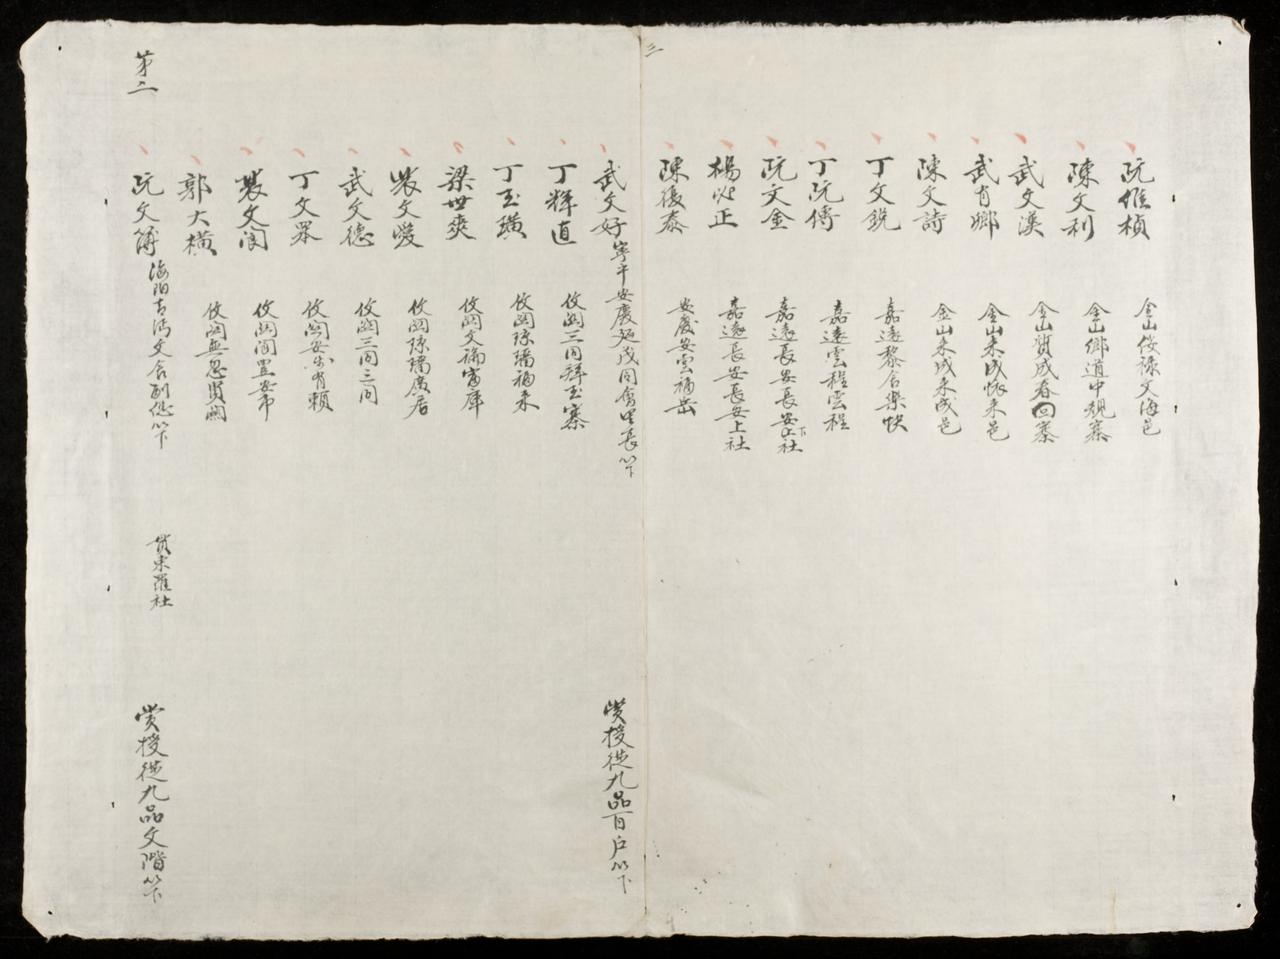 三
阮維楨 金山俊祿文海邑
陳文利 金山鄉道中規寨
武文漢 金山質成春回寨
武有鄉 金山來成懷來邑
陳文詩 金山來成來成邑
丁文銳 嘉遠黎舍樂快
丁阮傳 嘉遠雲程雲程
阮文金 嘉遠長安長安下社
楊必正 嘉遠長安長安上社
陳後泰 安慶安雲福岳
武文好 寧平安慶延茂同會里長以下 賞授從九品百戶以下
丁輝直 仝 三同 玉寨
丁玉璜 仝 琮璠福來
梁世爽 仝 文 富庫
裴文 仝 琮璠廣居
武文德 仝 三同三同
丁文眾 仝 安 有賴
裴文閏 仝 閏 安市
郭大橫 仝 無忽
阮文簿 海陽 文會副總以下 貫東羅社 賞授從九品文階以下
第二